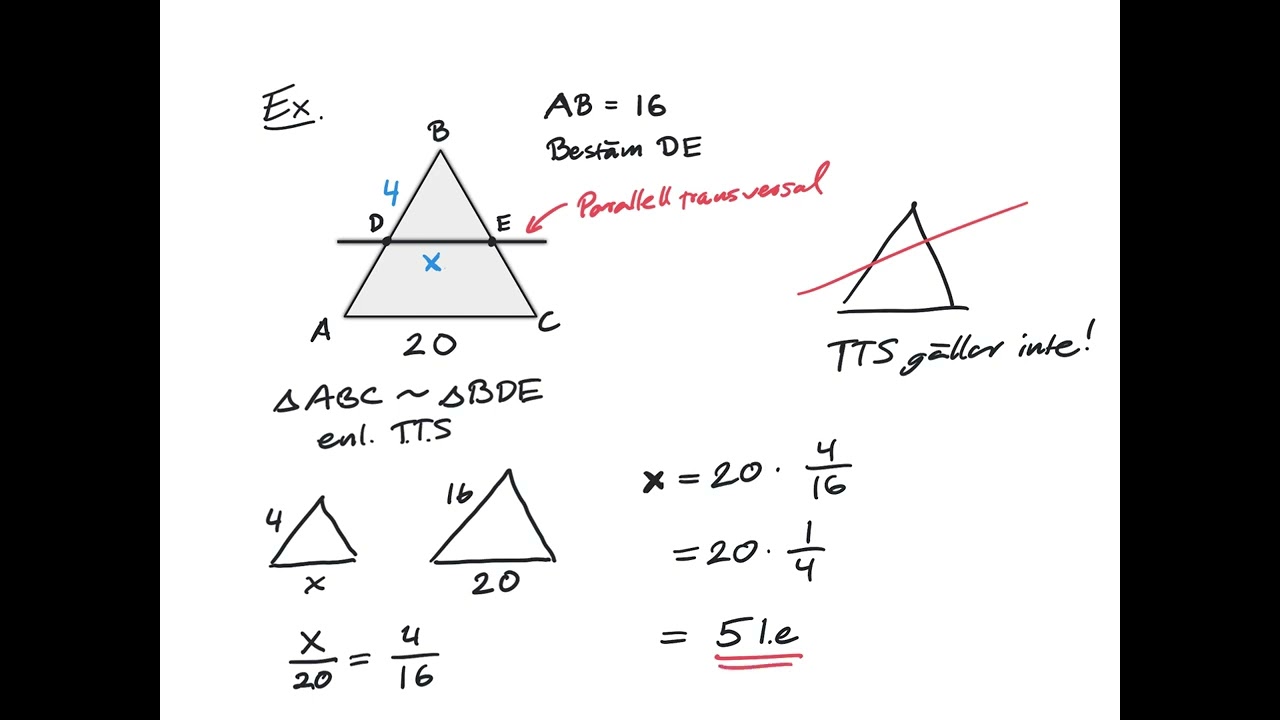 Ex.
AB = 16
Bestäm DE
Parallell transversal
B
4
D
E
x
A
C
20
TTS gäller inte!
△ABC ~ △BDE
enl. T.T.S
4
x
16
20
x/20 = 4/16
x = 20 · 4/16
= 20 · 1/4
= 5 l.e